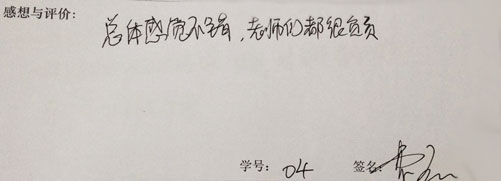 感想与评价:
总体感觉不错,老师们都很负责
学号: 04 签名: